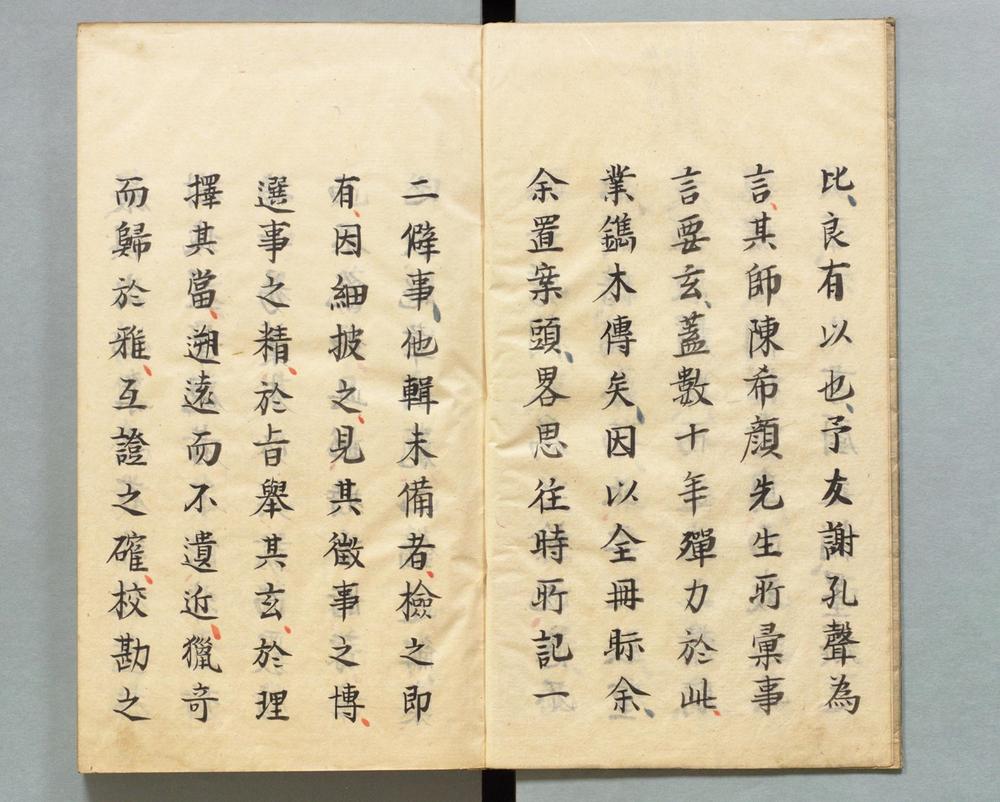 比、良有以也、予友謝孔聲為
言、其師陳希顏先生所彙事
言要玄、蓋數十年殫力於此、
業鐫木傳矣、因以全冊眎余、
余置案頭、畧思往時所記一
二僻事、他輯未備者、檢之即
有、因細披之、見其徵事之博、
選事之精、於旨舉其玄、於理
擇其當、遡遠而不遺近、獵奇
而歸於雅、互證之確、校勘之